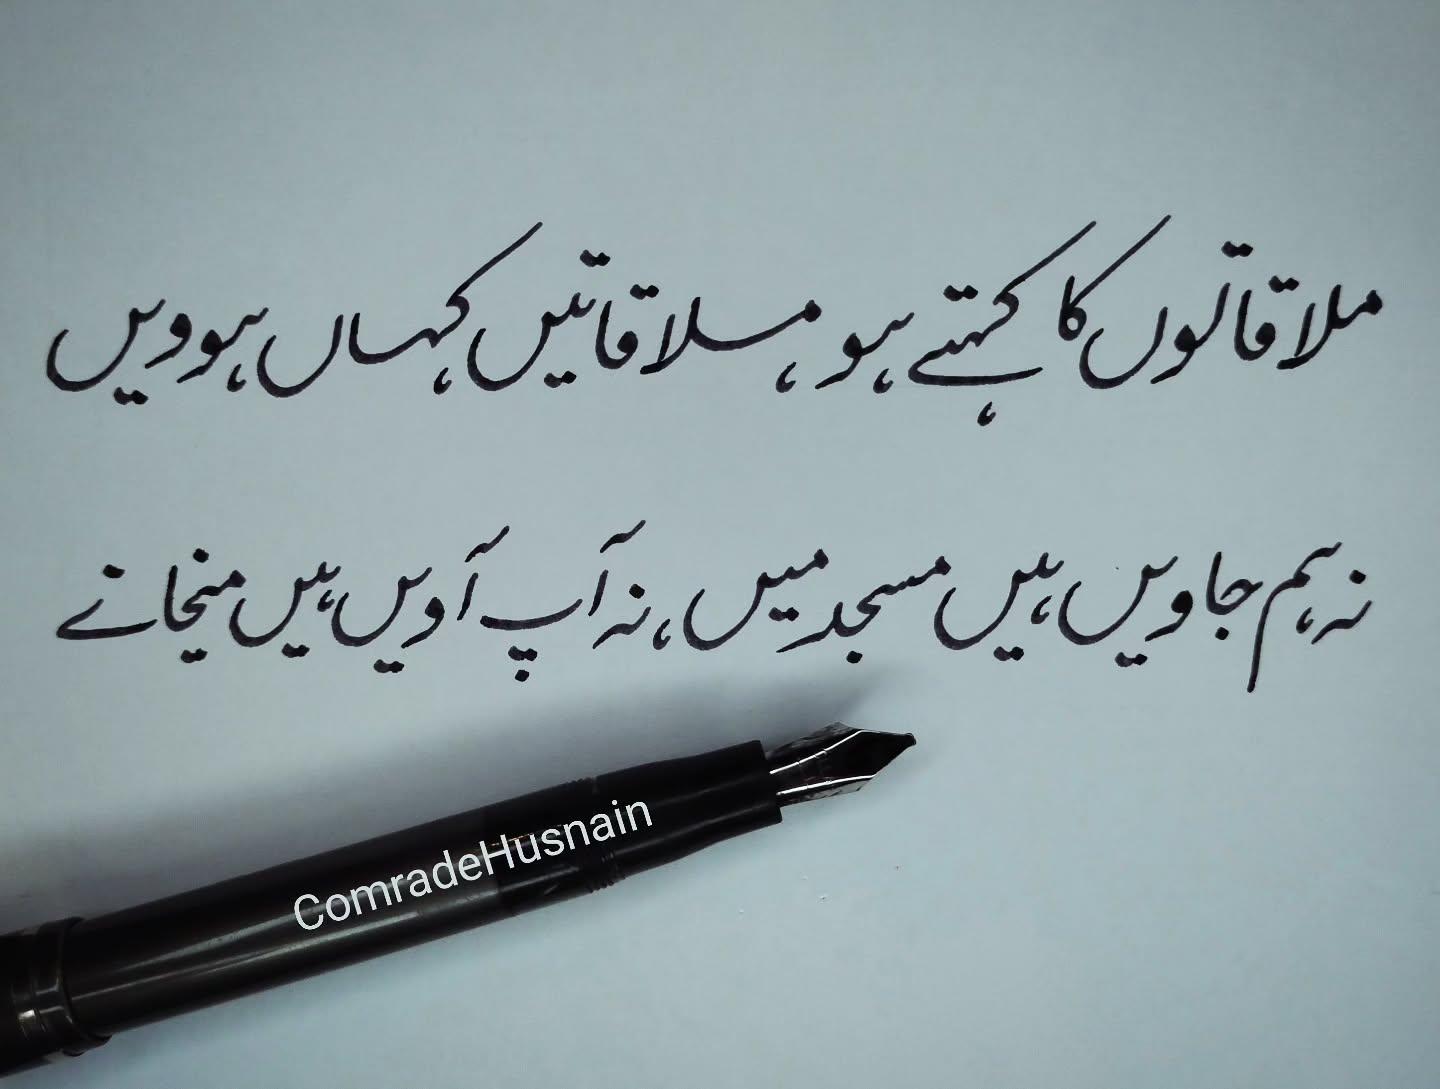 ملاقاتوں کا کہتے ہو، ملاقاتیں کہاں ہوویں
نہ ہم جاویں ہیں مسجد میں، نہ آپ آویں ہیں میخانے
ComradeHusnain